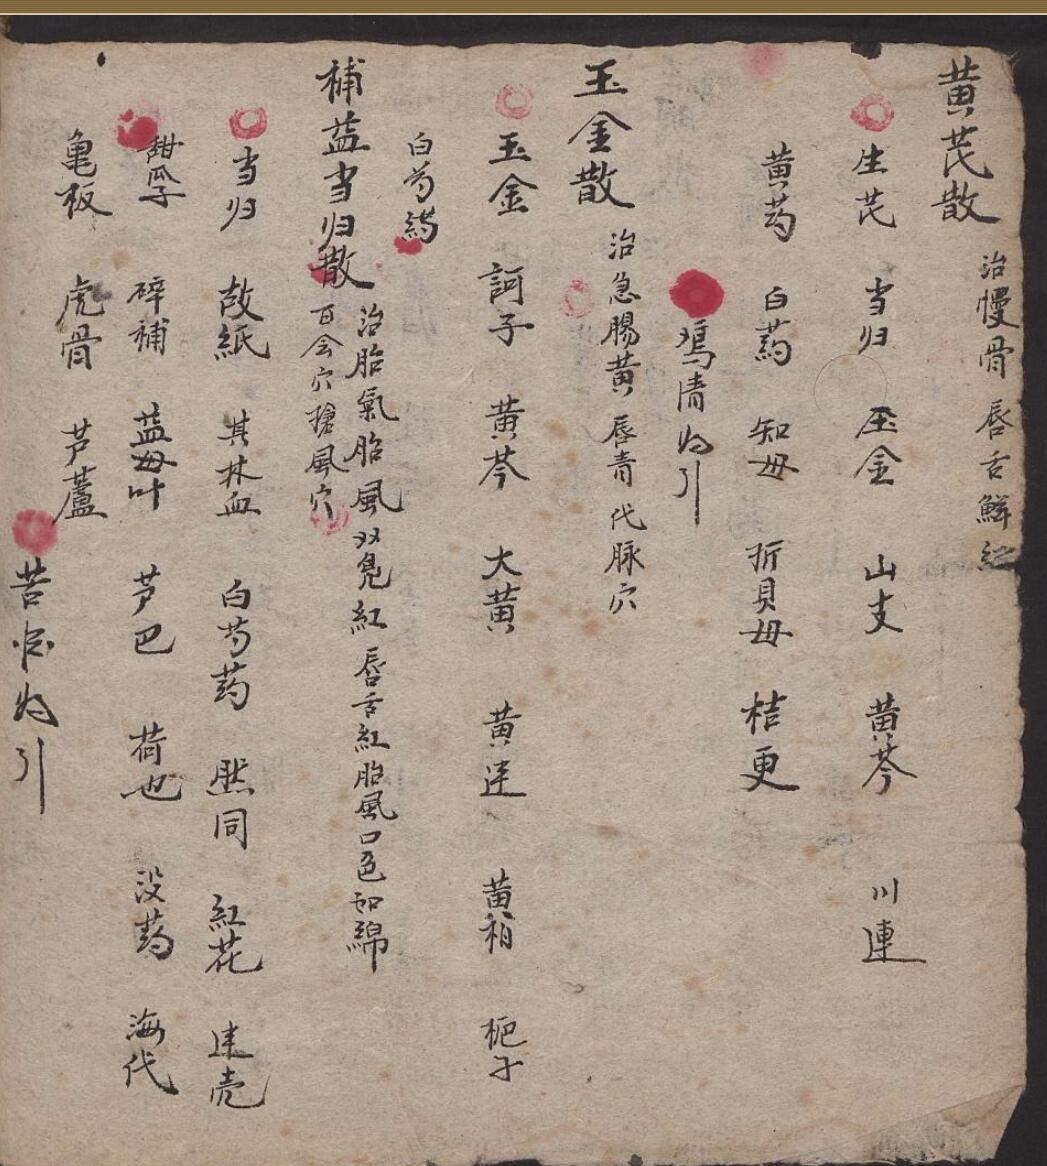 黄芪散
治慢骨 唇舌鮮紅
生芪 当归 玉金 山支 黄芩 川連
黄药 白药 知母 折貝母 桔更
清为引
玉金散
治急腸黄 唇青 代脉穴
玉金 訶子 黄芩 大黄 黄连 黄柏 栀子
白芍药
補益当归散
治胎氣胎風双凫紅 唇舌紅胎風口色如綿
百会穴搶風穴
当归 故紙 其林血 白芍药 然同 紅花 连壳
甜瓜子 碎補 益母叶 芦巴 荷也 没药 海代
亀板 虎骨 芦蘆
苦酒为引